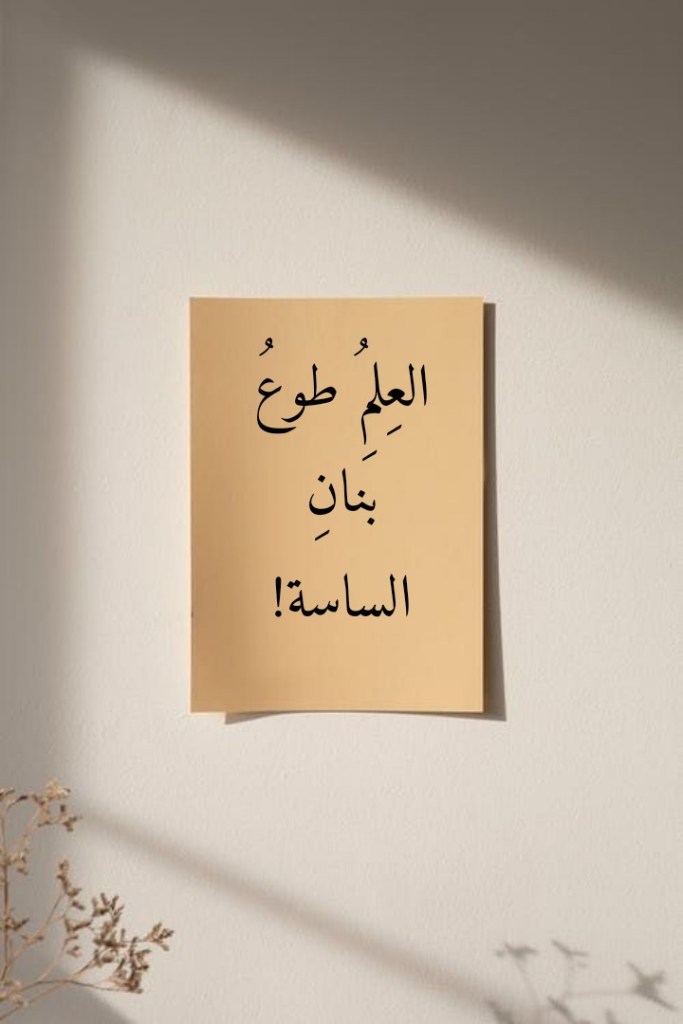 العِلمُِ طوعُ
بنانِ
الساسة!